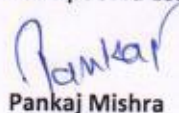 Pankaj
Pankaj Mishra